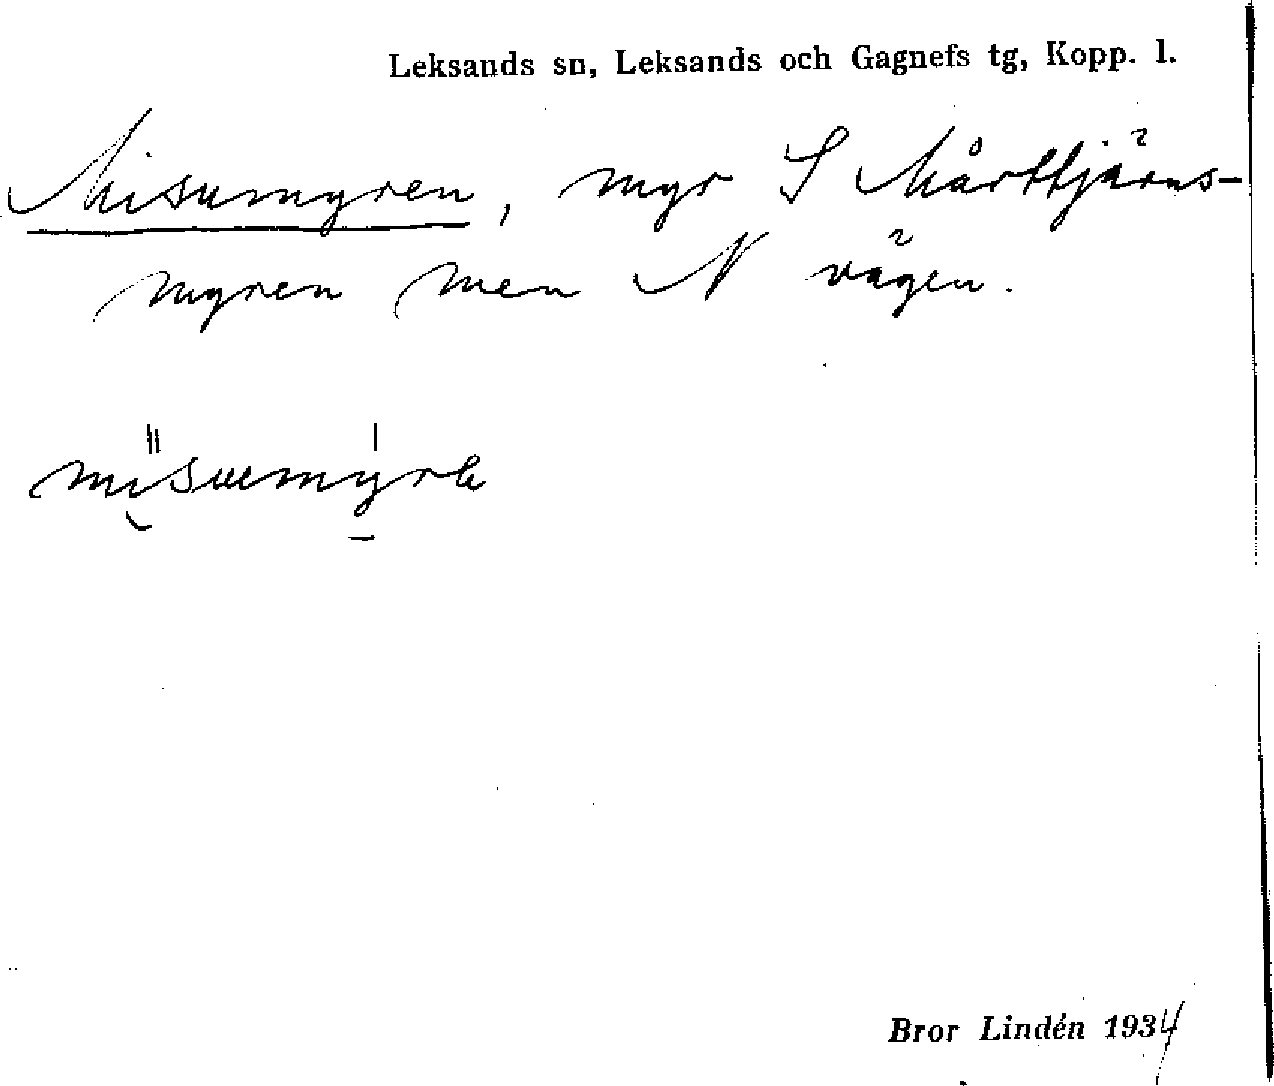 Leksands sn, Leksands och Gagnefs tg, Kopp. l.
Misumyren, myr S Mårttjärns-
myren men N vägen.
Bror Lindén 1934